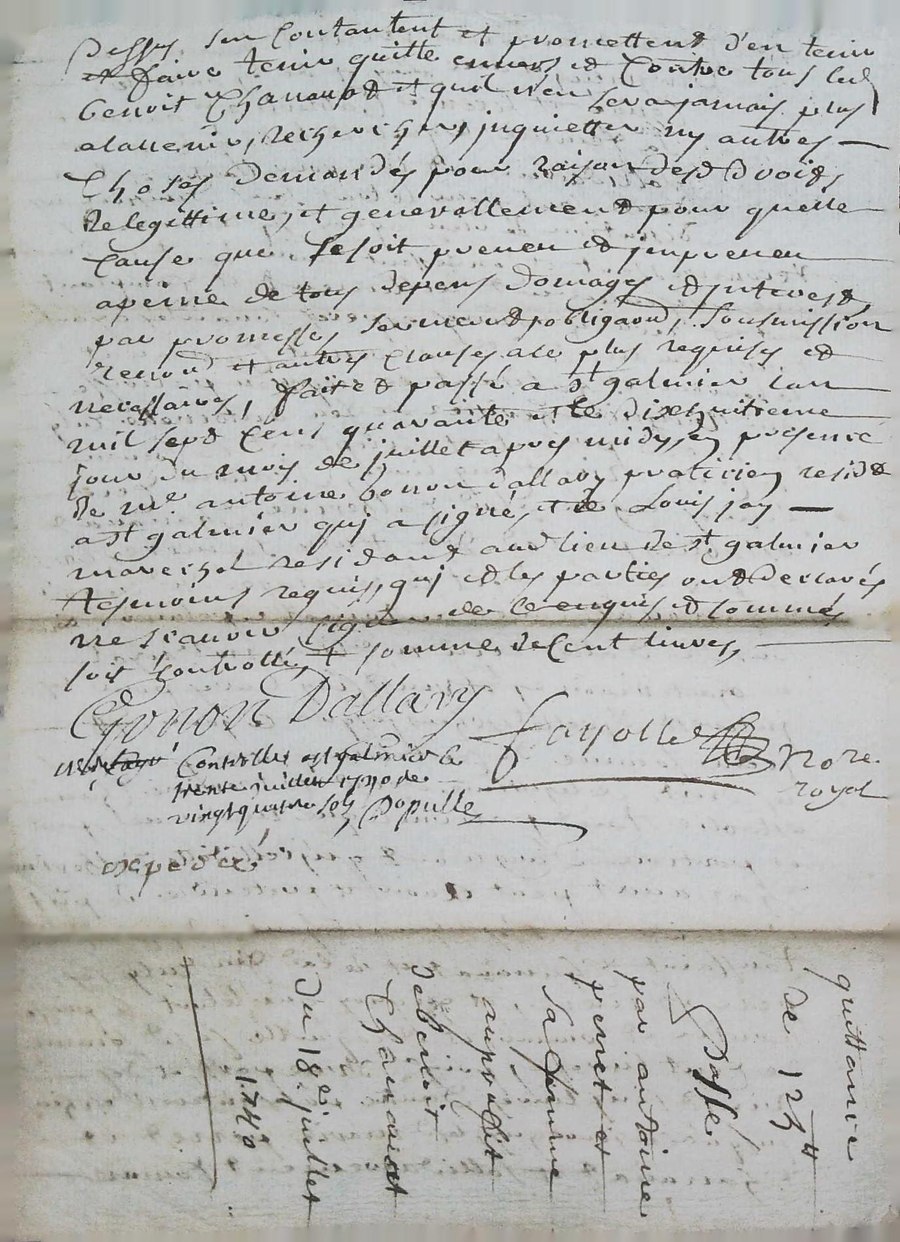 sen Contantent et promettent d'en tenir
et faire tenir quitte envers et Contre tous led
benoit Chanaud et quil n'en sera jamais plus
alavenir, recherches, inquietter ny autres
Choses demandés pour raison desd droits
de legittime, et generallement pour quelle
Cause que Se soit preveu et impreveu
apeine de tous depens domages et interest,
par promesses, serment obligaon, Soumission
renon et autres Clauses ace plus requises et
necessaires, fait et passé a st galmier Lan
mil sept Cens quarante et le dixhuitieme
jour du mois de juillet apres midy, en presence
de me. antoine Gonon dallary praticien resid
a st galmier qui a signé, et de Louis jay
marechal residant aud lieu de st galmier
tesmoins requis, qui et les parties ont declarés
ne scavoir signer de ce enquis et sommés
soit Controllé, somme de Cent livres,
Gonon Dallary
fayolle nore.
royal
Controllé a st galmier le
trente juillet 1740 Re
vingt quatre sols Populle
expedié
quittance
de 125tt
Passée
par antoine
perret et
Sa femme
au proffit
de benoit
Chanaud
du 18e juillet
1740